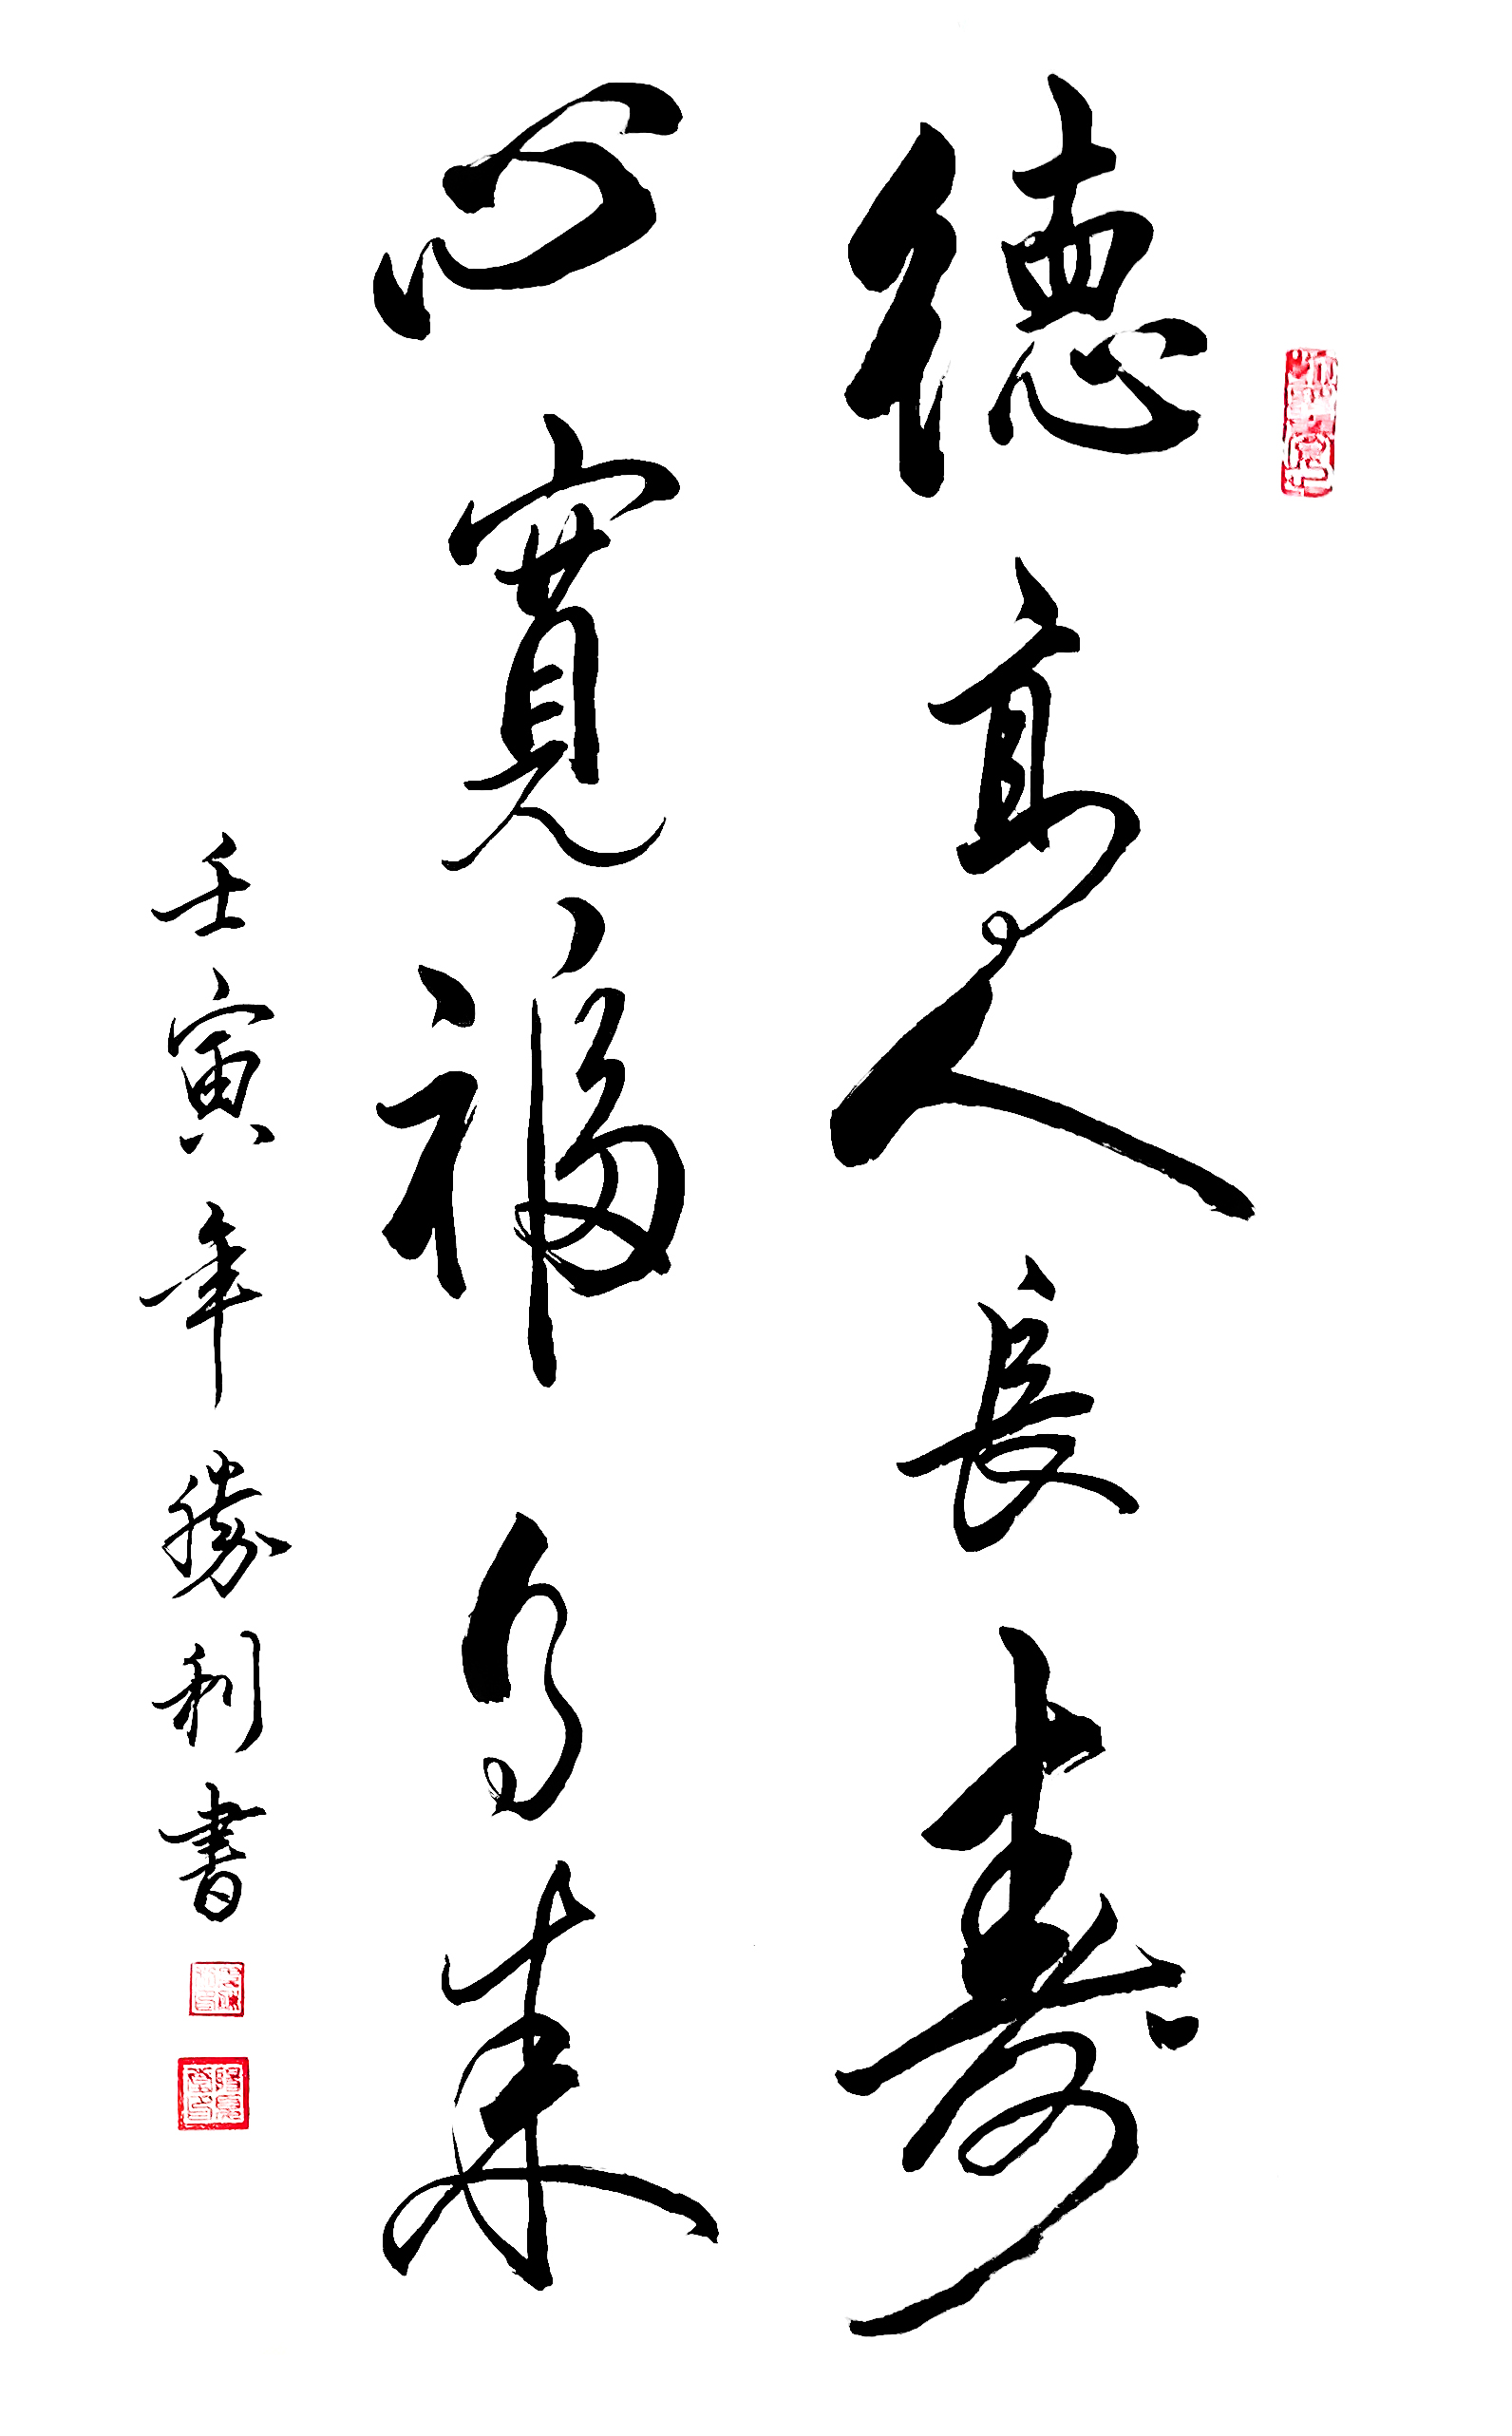 德高人長壽
心寬福自來
壬寅年勝利書